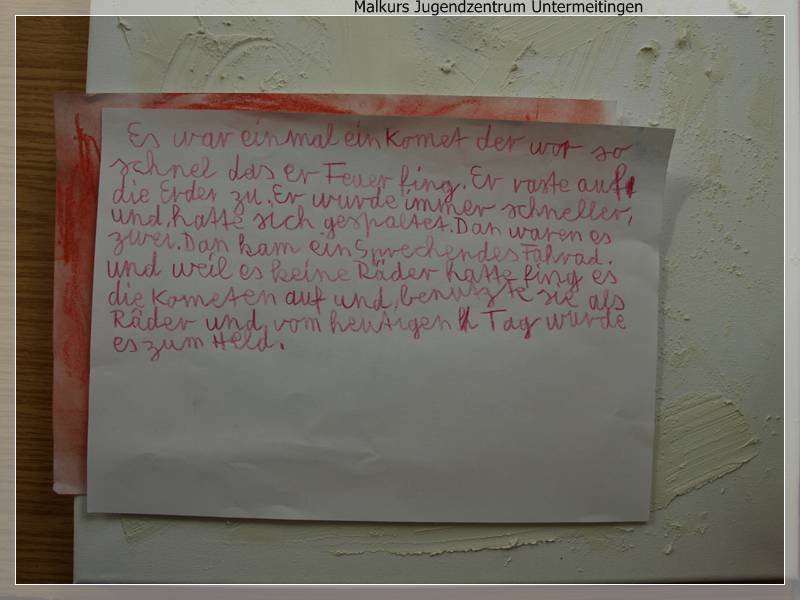 Malkurs Jugendzentrum Untermeitingen
Es war einmal ein Komet der wor so
schnel das er Feuer fing. Er raste auf
die Erder zu. Er wurde immer schneller,
und, hatte sich gespaltet. Dan waren es
zwei. Dan kam ein Sprechendes Fahrad.
und weil es keine Räder hatte fing es
die Kometen auf und, benutzte sie als
Räder und, vom heutigen Tag wurde
es zum Held.